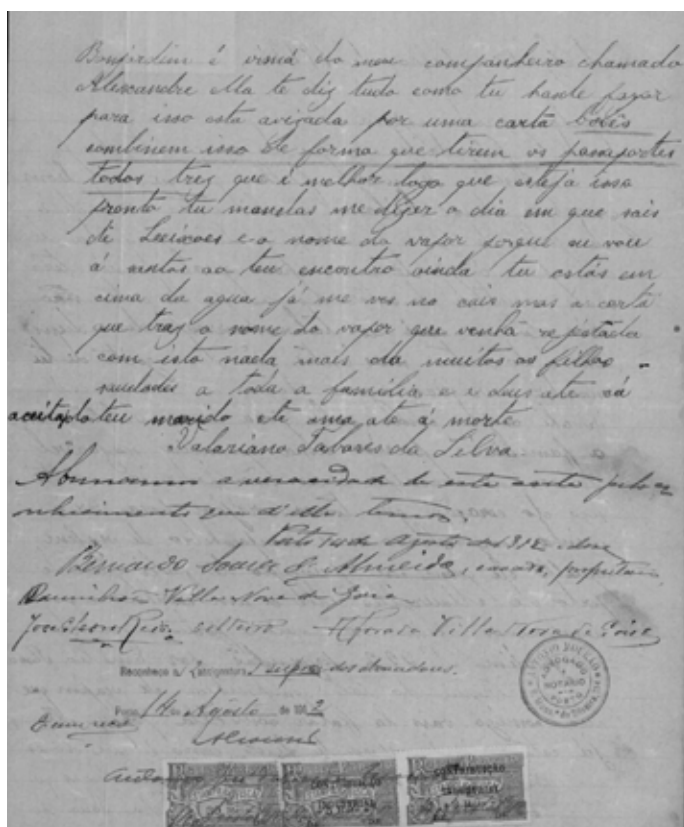 Bomjardim é irmã do meu companheiro chamado
Alexandre Ella te diz tudo como tu hasde fazer
para isso esta avizada por uma carta bocês
combinem isso de forma que tirem os passaportes
todos trez que é melhor logo que esteja isso
pronto tu mandas me dizer o dia em que sais
de Leixoes e o nome do vapor porque eu vou
á santos ao teu encontro ainda tu estás em
cima da agua já me ves no cais mas a carta
que traz o nome do vapor que venha rejistada
com isto nada mais da muitos aos filhos
saudades a toda a familia e a deus até cá
aceita do teu marido ete ama até á morte
Valariano Tabares da Silva
Abonamos a veracidade de esta carta pelo co-
nhecimento que d'ella temos.
Porto 14 de Agosto de 1912
Bernardo Soares d'Almeida, casado, proprietario
Villa Nova de Gaia
solteiro Villa Nova de Gaia
Reconheço 2 assignaturas supra dos abonadores.
Porto, 14 de Agosto de 1912
ANTONIO
ADVOGADO
E
NOTARIO
PORTO
CONTRIBUIÇÃO
INDUSTRIAL